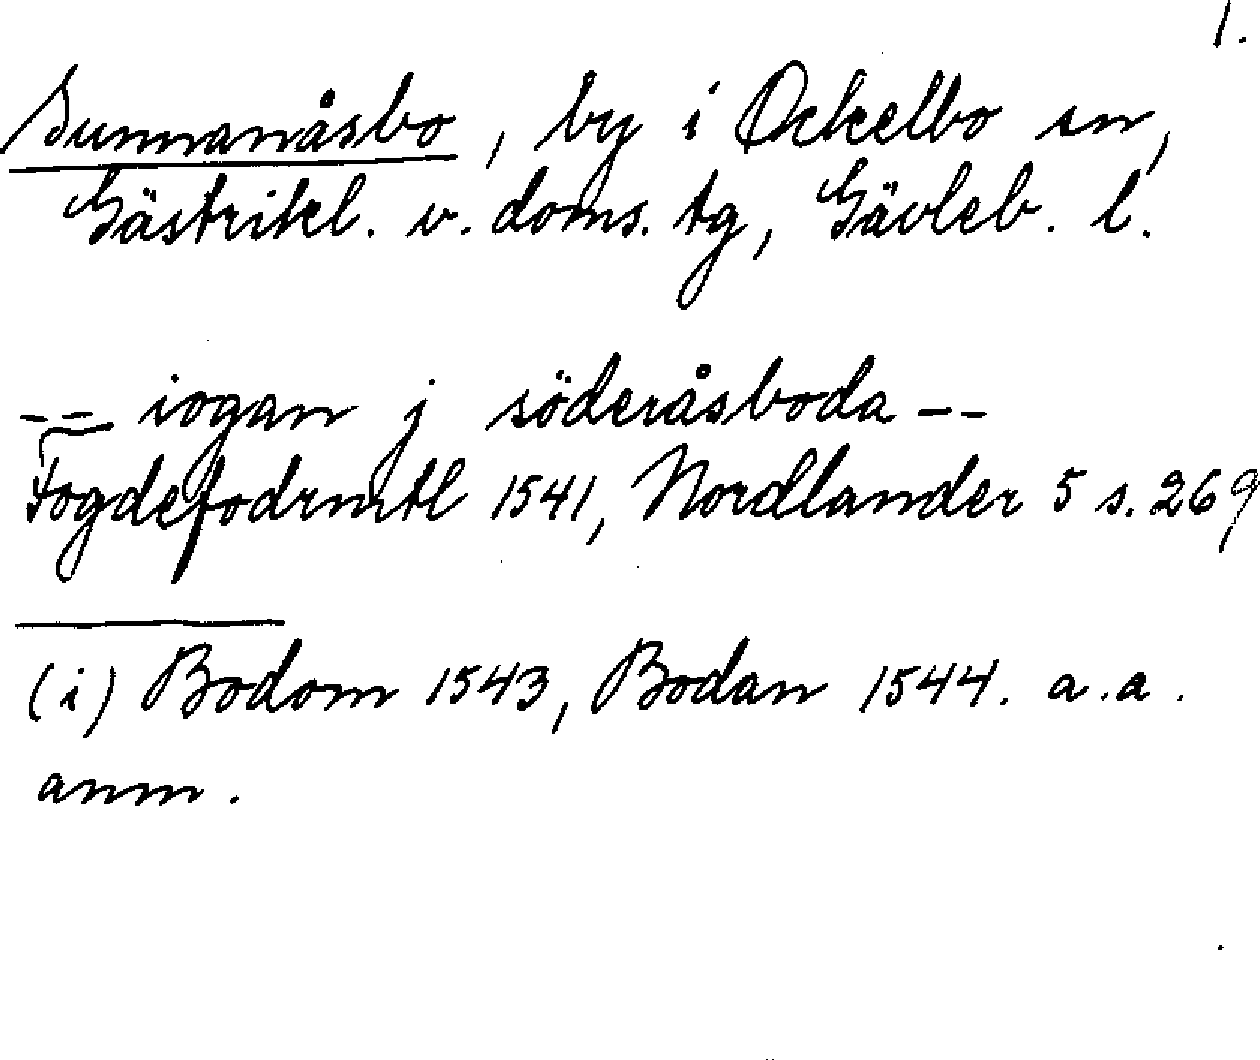 1.
Sunnanåsbo, by i Ockelbo sn,
Gästrikl. v. doms. tg, Gävleb. l.
-- iogan j söderåsboda --
Fogdefodrmtl 1541, Nordlander 5 s. 269
(i) Bodom 1543, Bodan 1544. a.a.
anm.